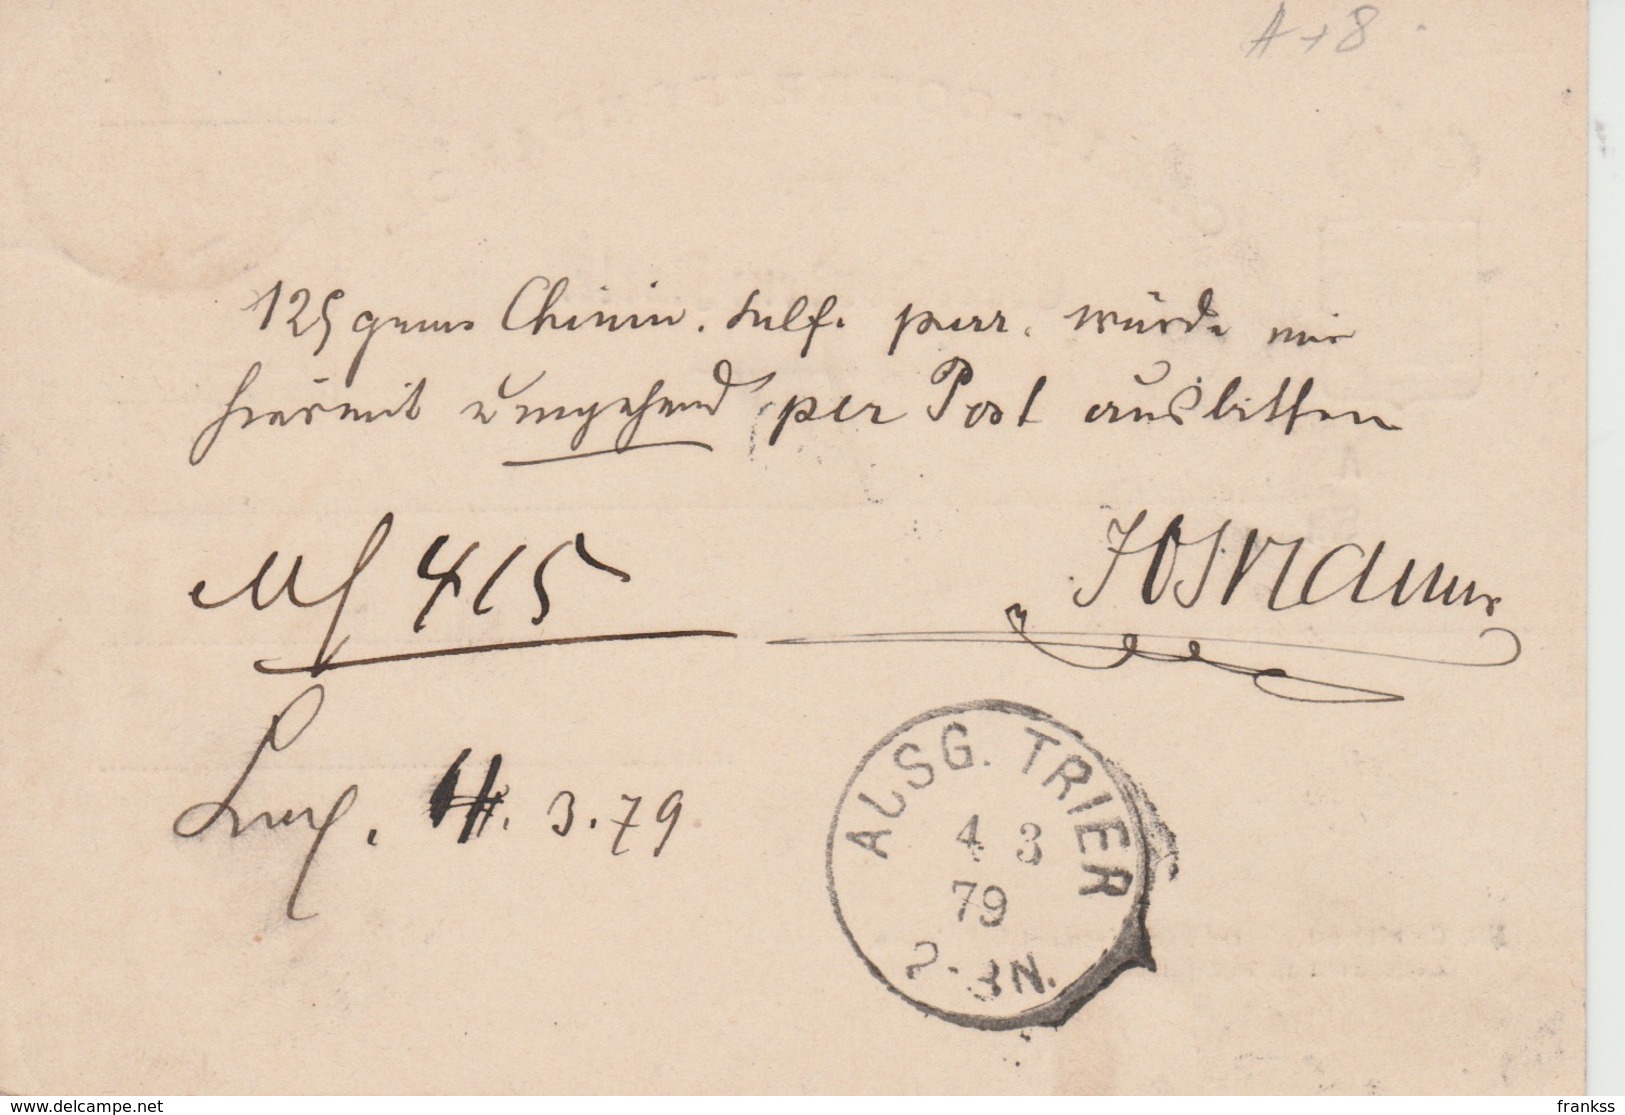 A + 8
125 gram Chinin. sulf. purr. würde mir
hiermit umgehend per Post ausbitten
415
Lux. 4. 3. 79
AUSG. TRIER
4 3
79
2-3N.
www.delcampe.net
frankss